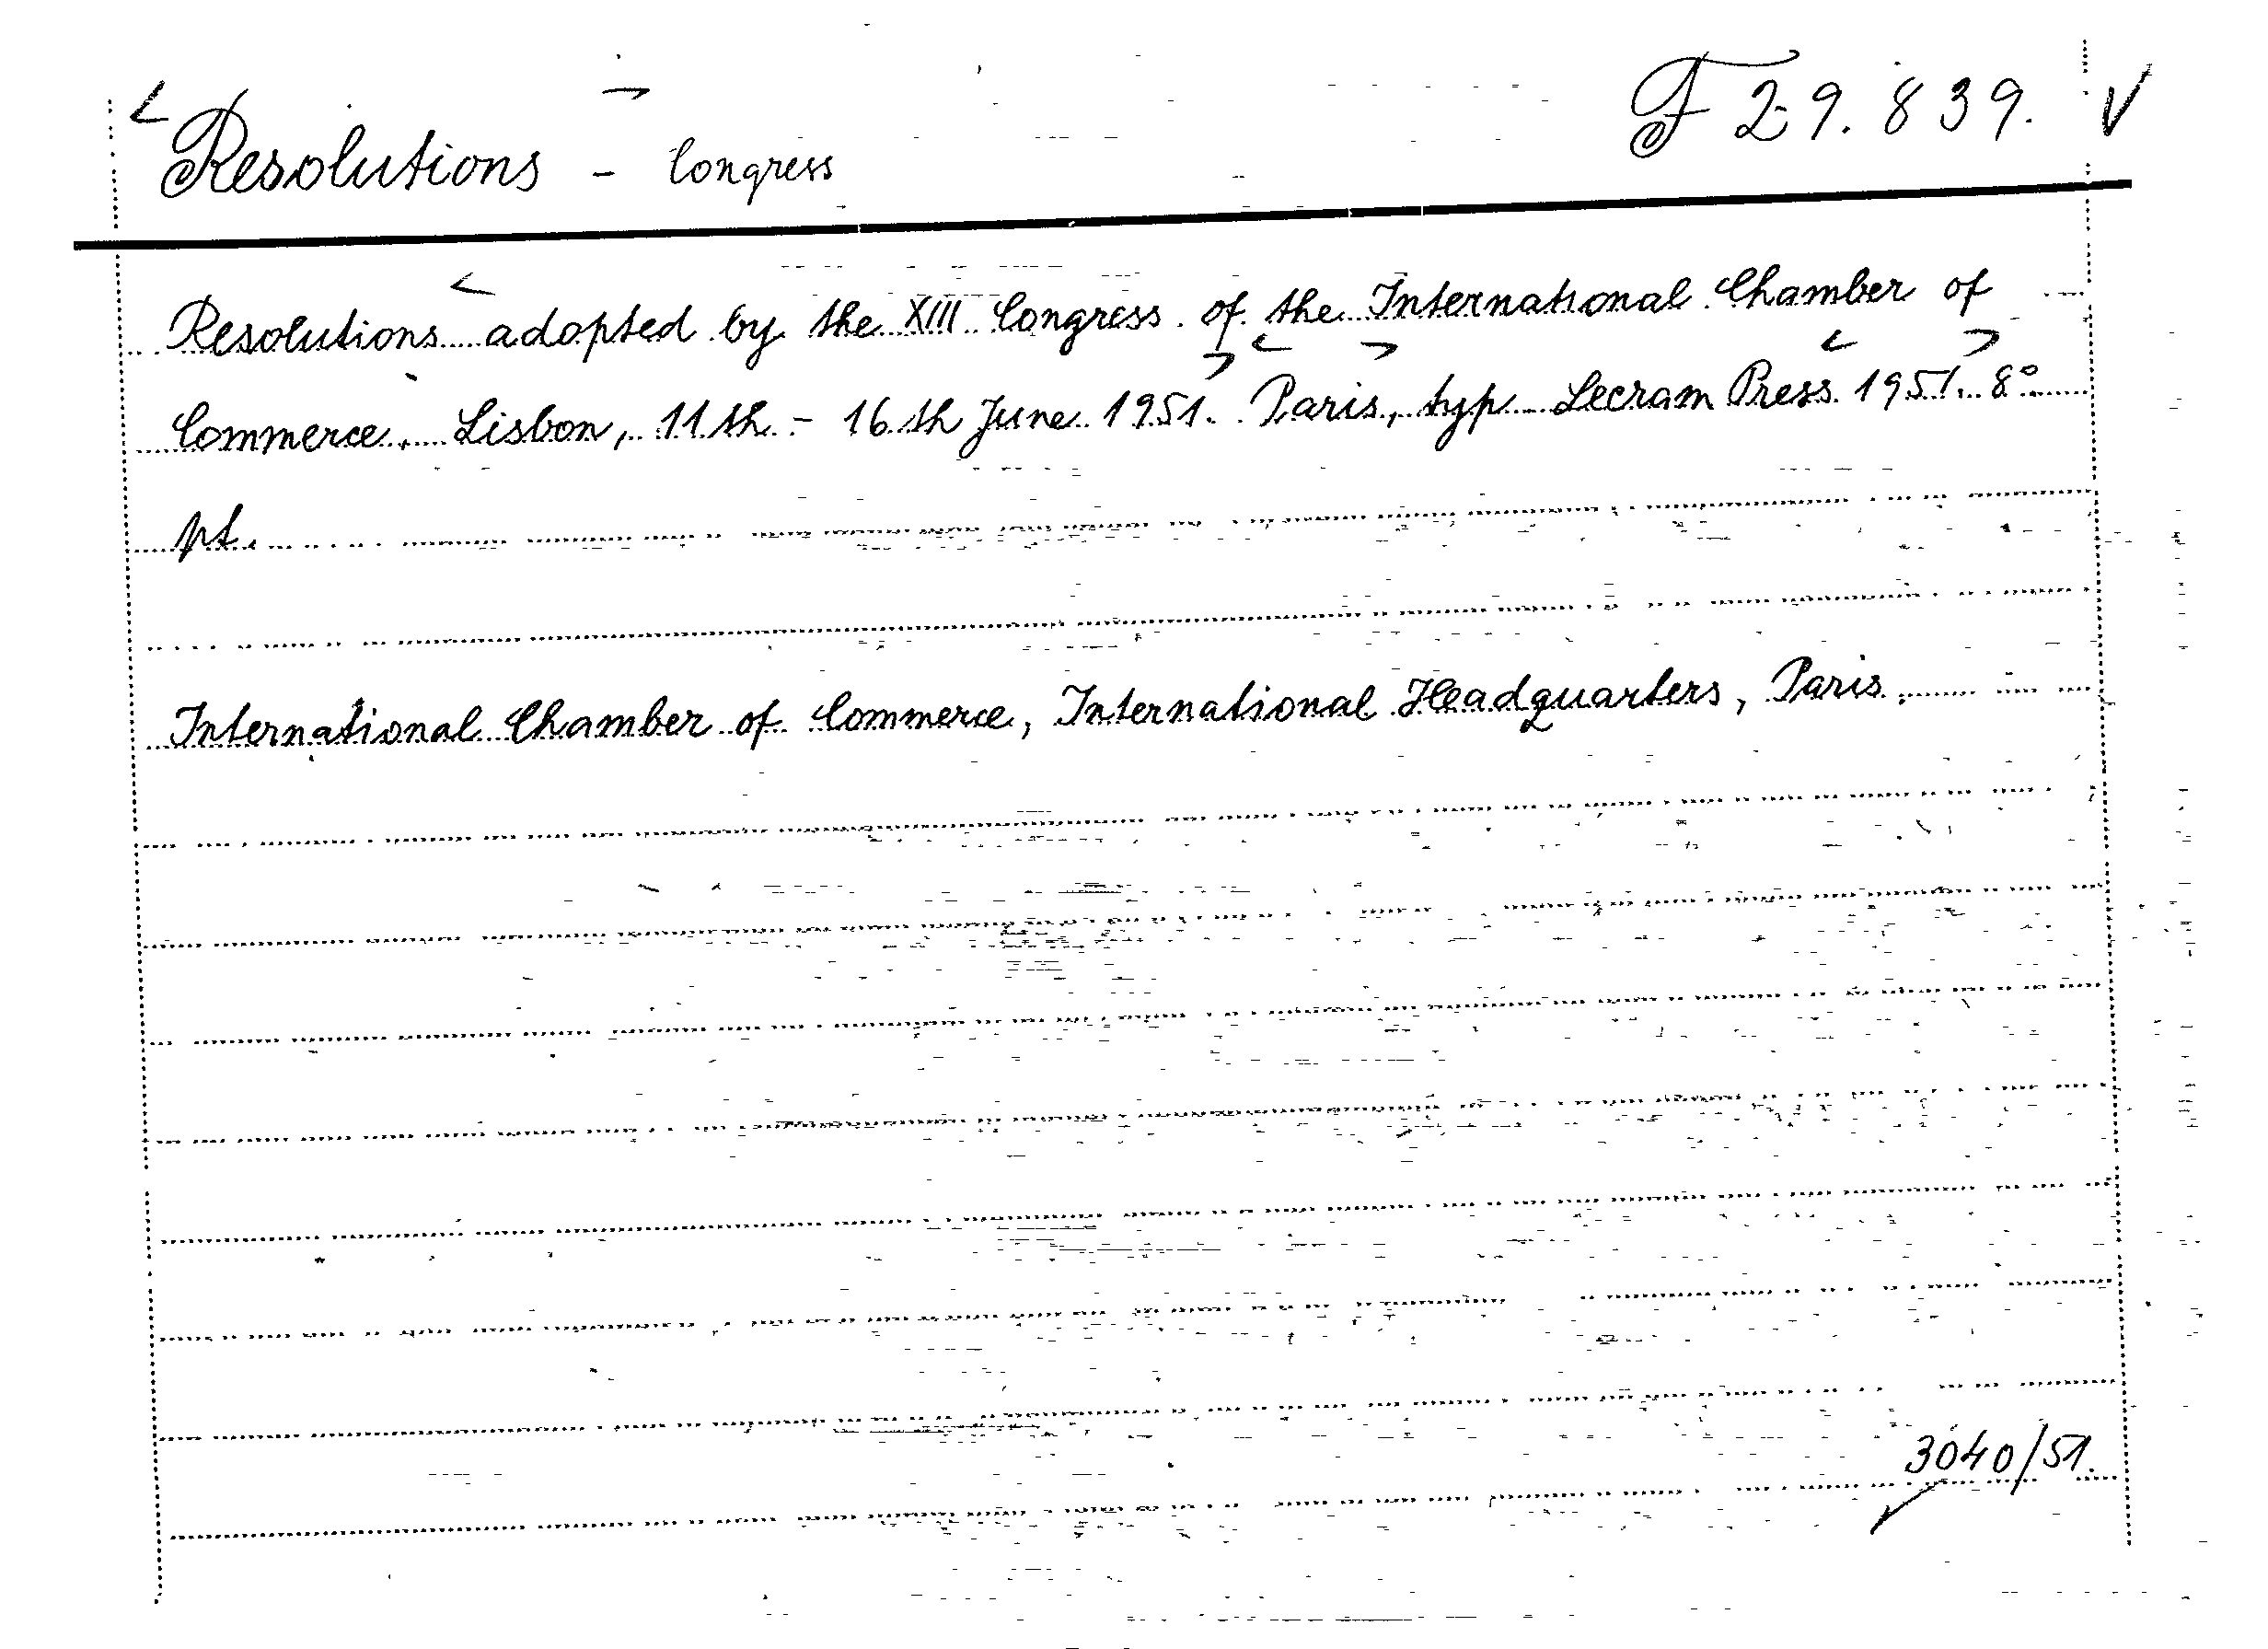 Resolutions - Congress F 29.839. V
Resolutions adopted by the XIII Congress of the International Chamber of
Commerce, Lisbon, 11th - 16th June 1951. Paris, typ Lecram Press 1951. 8°
pt.
International Chamber of Commerce, International Headquarters, Paris.
3040/51.